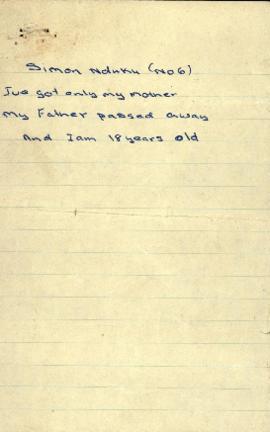 Simon Nduku (No 6)
I've got only my mother
My Father passed away
And I am 18 years old